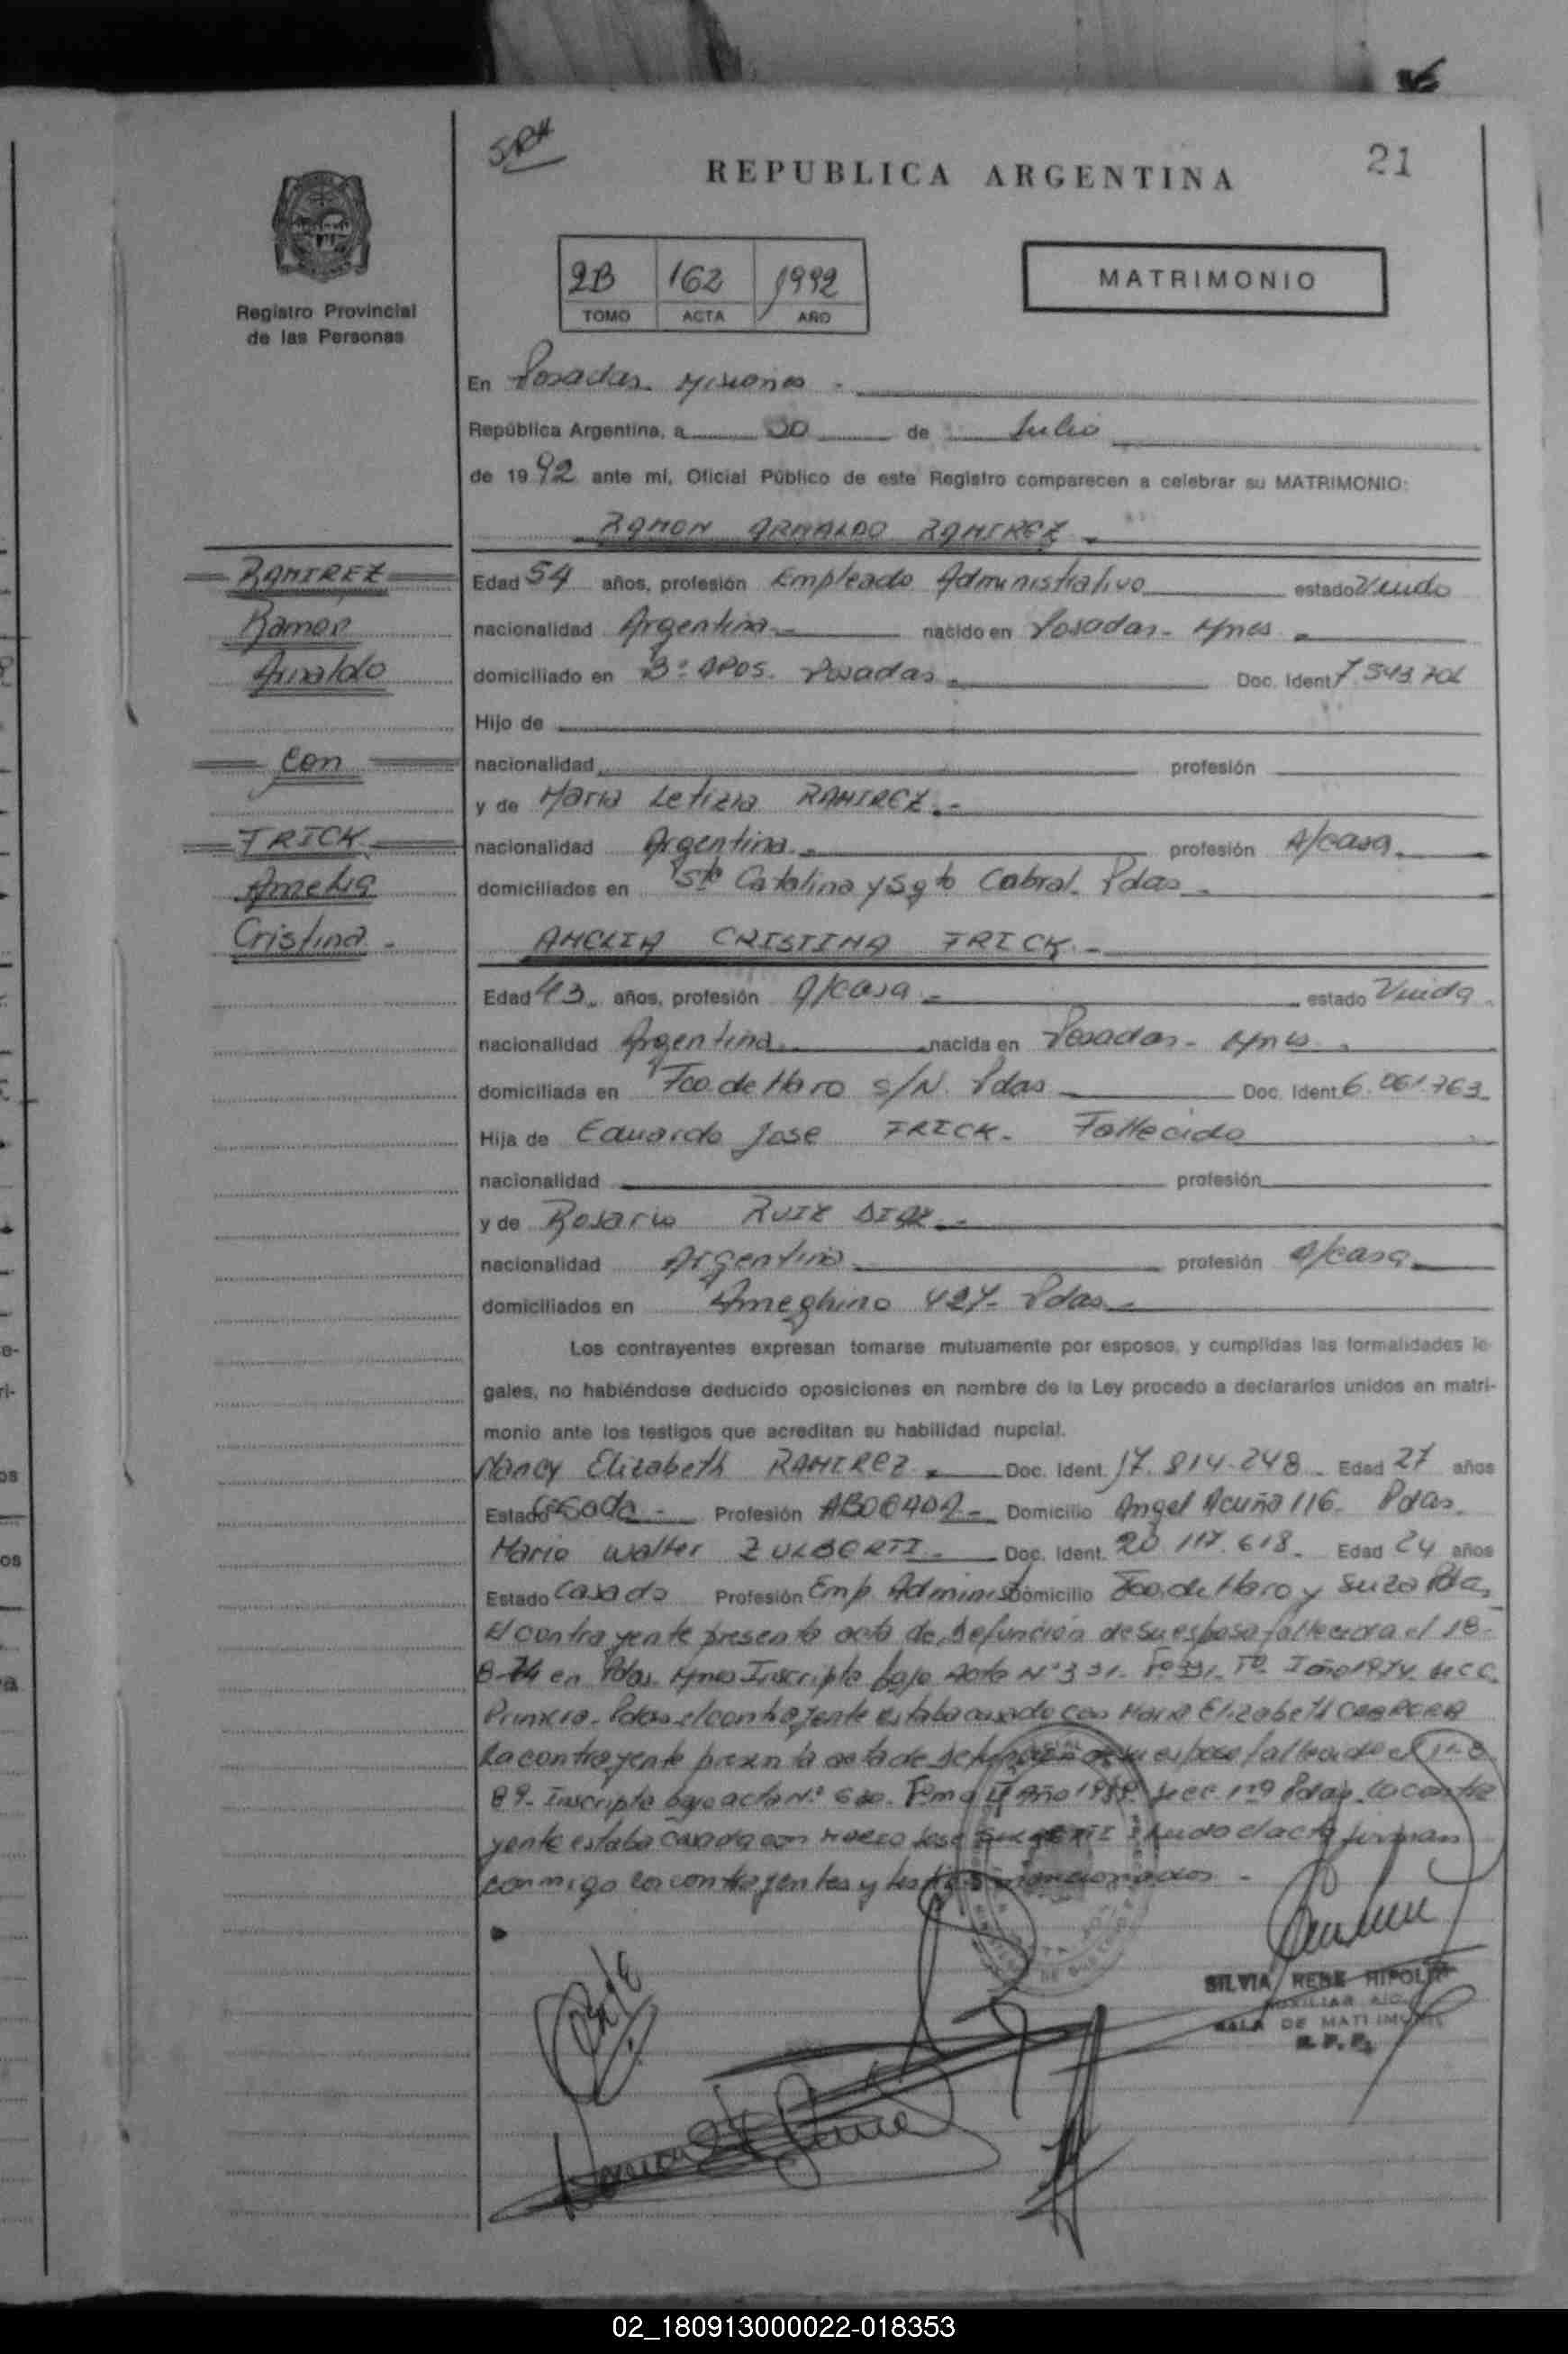 SRH
REPUBLICA ARGENTINA
21
2B 162 1992
TOMO ACTA AÑO
MATRIMONIO
Registro Provincial
de las Personas
En Posadas. Misiones -
República Argentina, a 30 de Julio
de 1992 ante mí, Oficial Público de este Registro comparecen a celebrar su MATRIMONIO:
RAMON ARNALDO RAMIREZ
RAMIREZ
Ramón
Arnaldo
Con
TRICK
Amelia
Cristina -
Edad 54 años, profesión Empleado Administrativo estado Viudo
nacionalidad Argentina nacido en Posadas - Mnes
domiciliado en B° APOS. Posadas Doc. Ident 7.543.706
Hijo de
nacionalidad profesión
y de Maria Letizia RAMIREZ.-
nacionalidad Argentina profesión A/casa
domiciliados en Sta Catalina y Sgto Cabral. Pdas
AMELIA CRISTINA TRICK.-
Edad 43 años, profesión A/casa estado Viuda
nacionalidad Argentina nacida en Posadas - Mnes
domiciliada en Fco. de Haro S/N. Pdas Doc. Ident. 6.061.763
Hija de Eduardo Jose TRICK. Fallecido
nacionalidad profesión
y de Rosario RUIZ DIAZ.-
nacionalidad Argentina profesión A/casa
domiciliados en Ameghino 427- Pdas
Los contrayentes expresan tomarse mutuamente por esposos, y cumplidas las formalidades le-
gales, no habiéndose deducido oposiciones en nombre de la Ley procedo a declararlos unidos en matri-
monio ante los testigos que acreditan su habilidad nupcial.
Nancy Elizabeth RAMIREZ Doc. Ident. 17.814.248 Edad 27 años
Estado Casada Profesión ABOGADA Domicilio Angel Acuña 116- Pdas.
Mario Walter ZULBERTI Doc. Ident. 20.117.618 Edad 24 años
Estado Casado Profesión Emp. Administ Domicilio Fco. de Haro y Suiza Pdas
El contrayente presenta acta de defunción de su esposa fallecida el 18-
8-74 en Pdas. Mnes Inscripta bajo Acta N° 331- F° 331- T° I año 1974. Secc.
Primera- Pdas. el contrayente estaba casado con Maria Elizabeth CABRERA
La contrayente presenta acta de defunción de su esposo fallecido el
89- Inscripta bajo acta N° Tomo II Año 1989 Secc. 1ra Pdas. la contra
yente estaba casada con Jose Leida el acta firman
conmigo los contrayentes y testigos mencionados -
SILVIA RENE RIPOLL
AUXILIAR
SALA DE MATRIMONIOS
R.P.P.
02_180913000022-018353